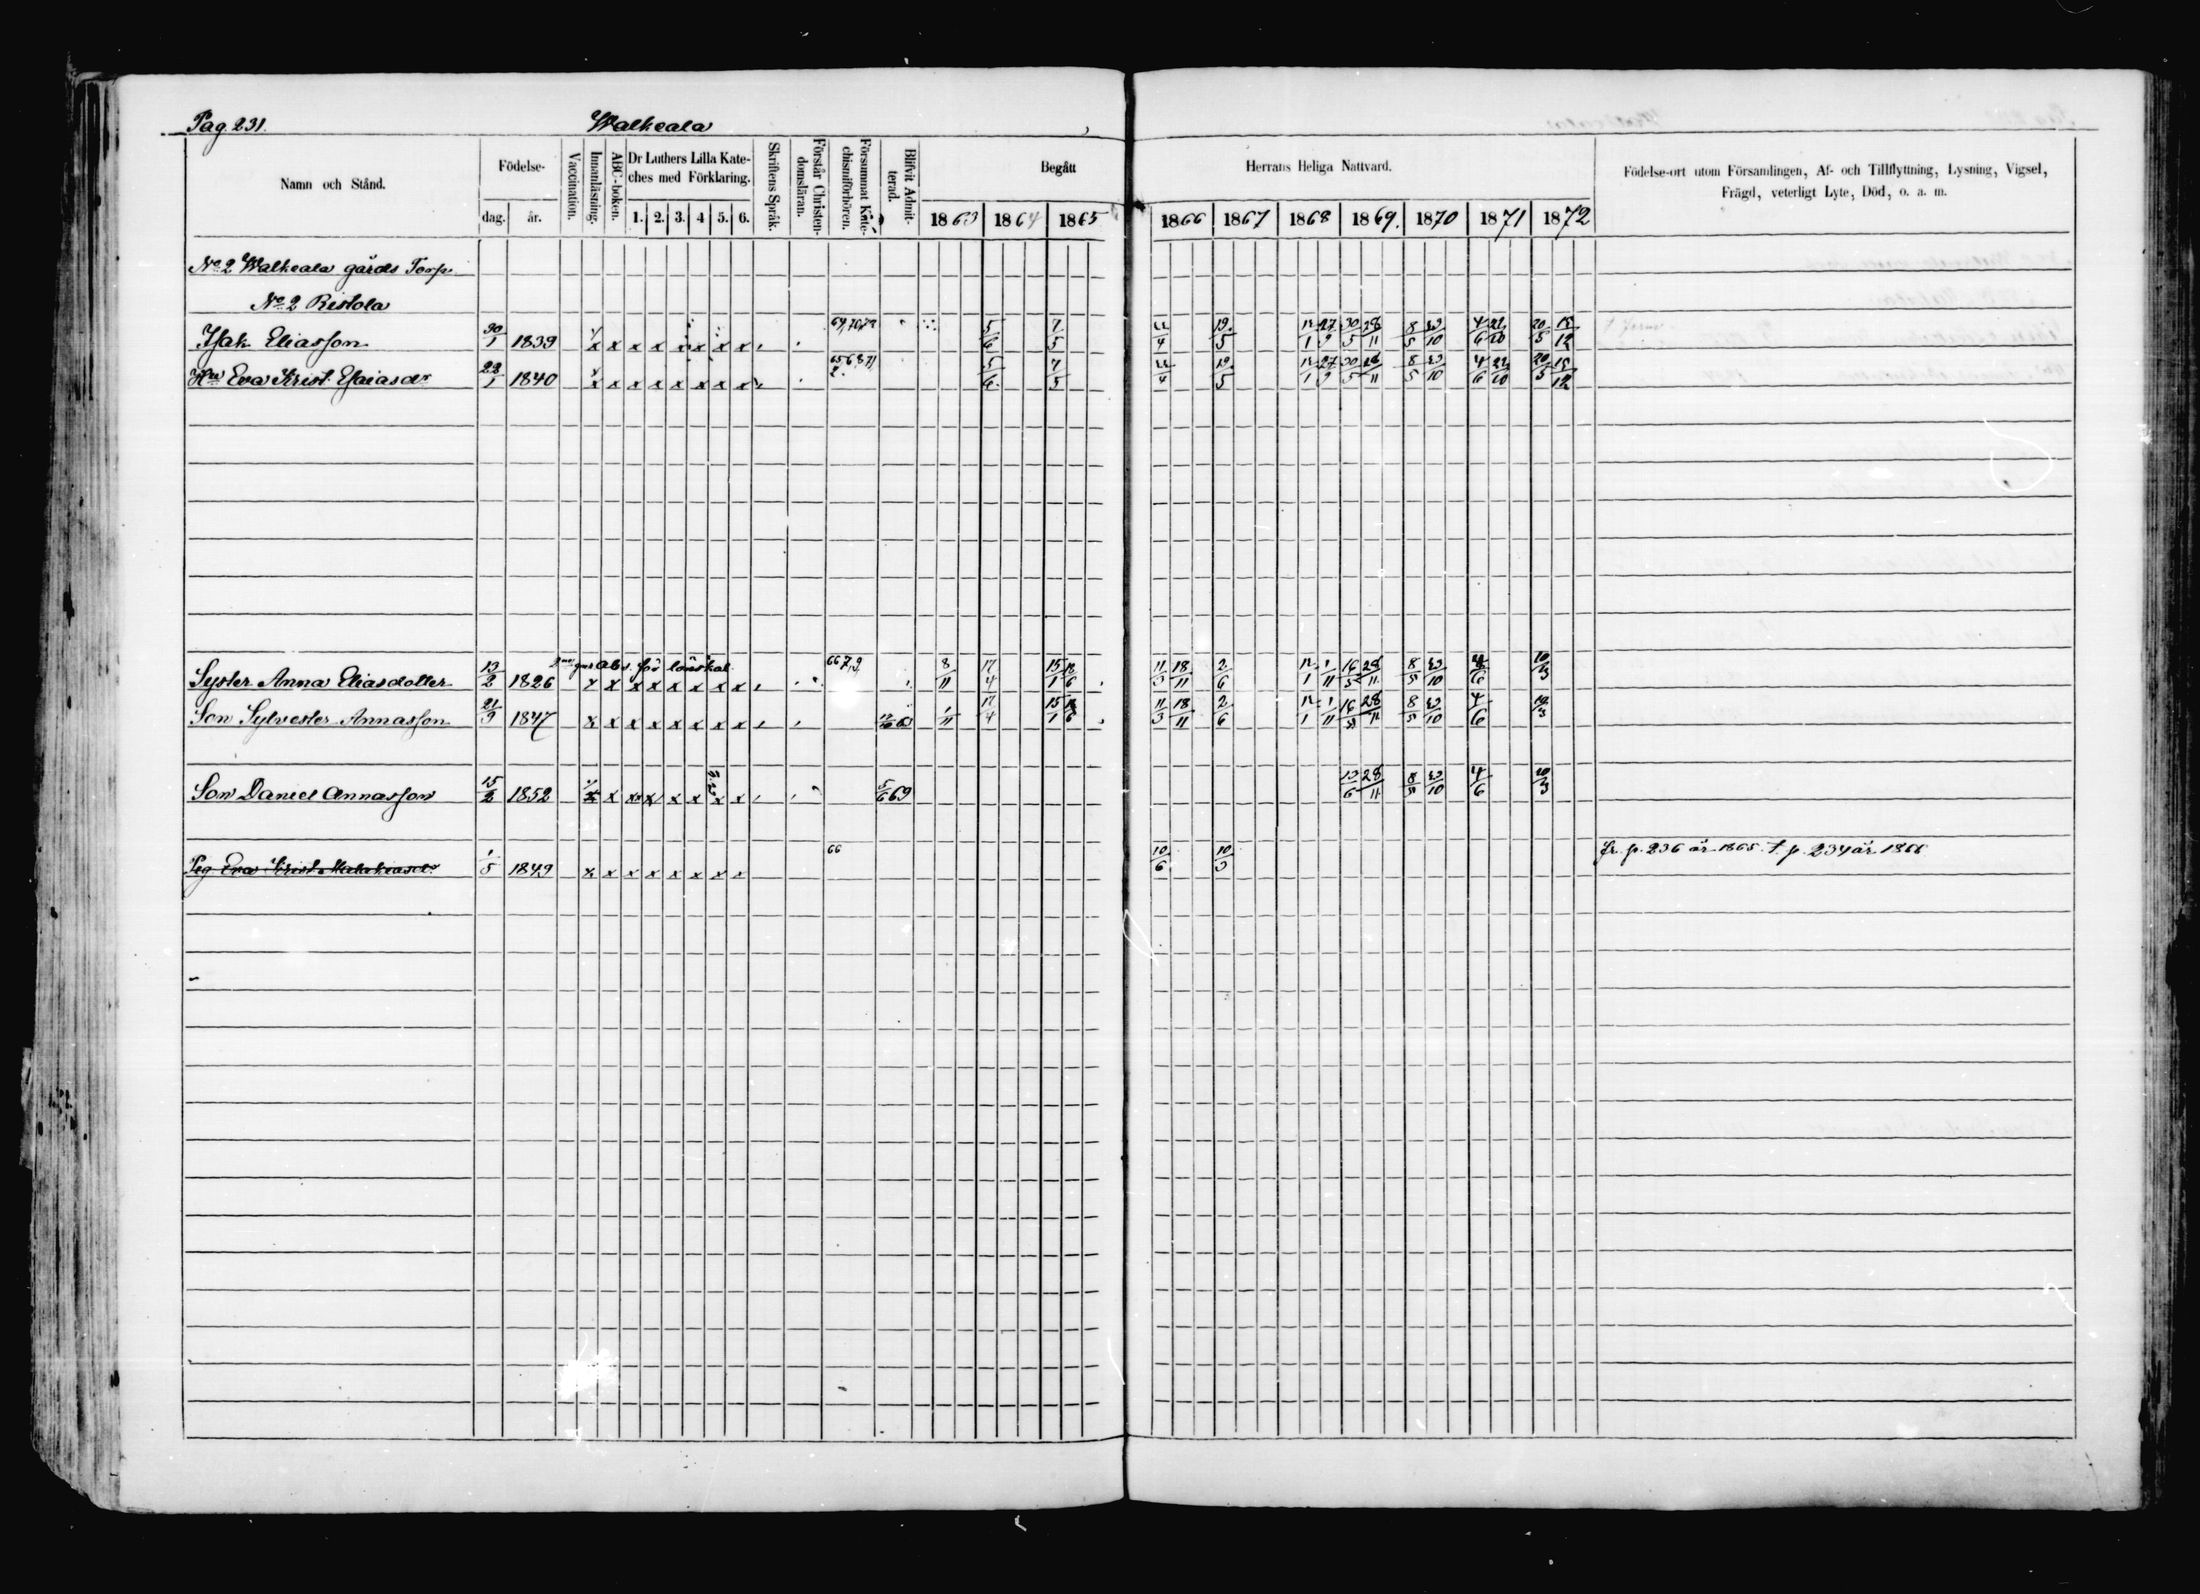 Pag. 231. Walkeala
Namn och Stånd. Födelse- dag. år. Vaccination. Innanläsning. ABC-boken. Dr Luthers Lilla Kate-
ches med Förklaring. 1. 2. 3. 4 5. 6. Skriftens Språk. Förstår Christen-
domsläran. Försummat Kate-
chismiförhören. Blifvit Admit-
terad. Begått Herrans Heliga Nattvard.
1863 1864 1865 1866 1867 1868 1869. 1870 1871 1872
Födelse-ort utom Församlingen, Af- och Tillflyttning, Lysning, Vigsel,
Frägd, veterligt Lyte, Död, o. a. m.
No 2 Walkeala gårds Torp
No 2 Ristola
Isak Eliasson 30/1 1839 x x x x x x x x 64,70,72 5/6 7/5 19/5 30/5 28/11 8/5 23/10 4/6 22/10 20/5 15/12
Hu Eva Krist. Esaiasdr 22/1 1840 x x x x x x x x 5/6 7/5 19/5 30/5 28/11 8/5 23/10 4/6 22/10 20/5 15/12
Syster Anna Eliasdotter 13/2 1826 x x x x x x x x 66 7,9 8/11 17/4 15/1 18/6 11/3 18/11 2/6 12/1 1/11 16/5 28/11 8/5 23/10 4/6 10/3
Son Sylvester Annasson 21/9 1847 x x x x x x x x 1/11 17/4 15/1 18/6 11/3 18/11 2/6 12/1 1/11 16/5 28/11 8/5 23/10 4/6 10/3
Son Daniel Annasson 15/2 1852 x x x x x x x x 5/6 69 13/6 28/11 8/5 23/10 4/6 10/3
Pig Eva Krist Malakiasdr 1/5 1849 x x x x x x x x 66 10/6 10/3 fr. p. 236 år 1865. t. p. 234 år 1868